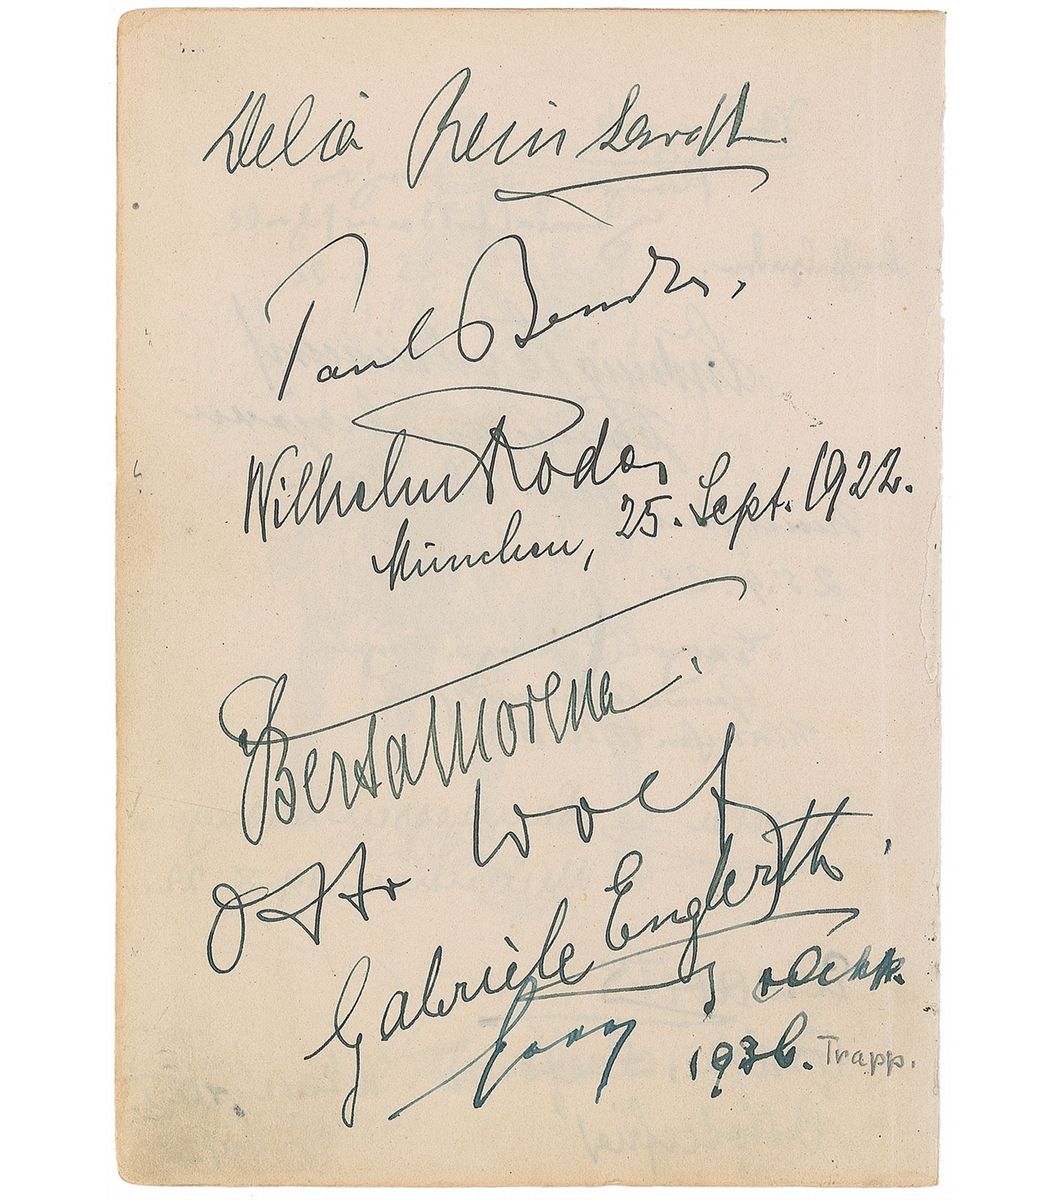 Delia Reinhardt.
Paul Bender,
Wilhelm Rode,
München, 25. Sept. 1922.
Berta Morena.
Otto Wolf
Gabriele Englerth.
1936. Trapp.